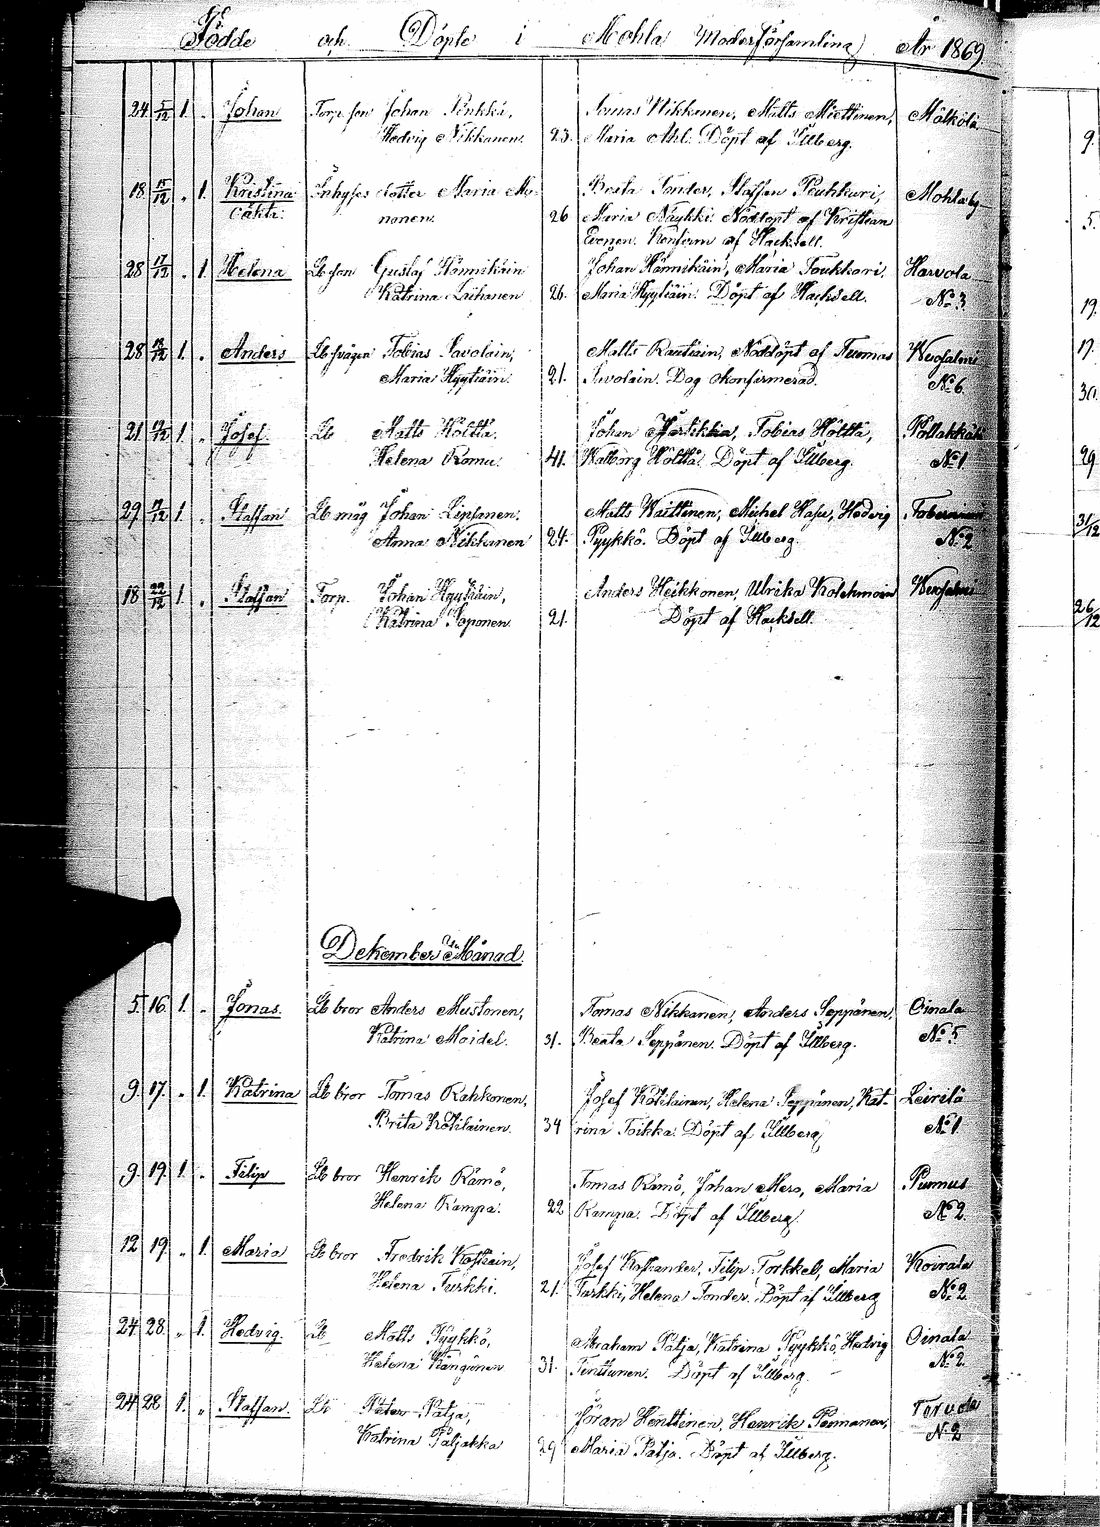 Födde och Döpte i Mohla Moderförsamling År 1869
24 5/12 1. „ Johan Torp. son Johan Pukkki, Tomas Nikkonen, Matts Miettinen, Mälkölä
Hedvig Nikkanen. 23. Maria Ahl. Döpt af Illberg.
18 15/12 „ 1. Kristina Inhyses dotter Maria Mu- Beata Tonder, Staffan Peukkuri, Mohla by
oäkta. nonen. 26 Maria Näykki. Nöddöpt af Kristian
Evonen. Konfirm af Hacksell.
28 17/12 „ 1. Helena Lb son Gustaf Hännikäin Johan Hännikäin, Maria Toukkari, Harvola
Katrina Laihanen 26. Maria Hyytiäin. Döpt af Hacksell. No 3
28 18/12 1. „ Anders Lb svåger Tobias Savolain, Matts Rautiain, Nöddöpt af Tuomas Wuosalmi
Maria Hyytiäin. 21. Savolain. Dog okonfirmerad. No 6.
21 19/12 1. „ Josef. Lb Matts Hölttä, Johan Tobias Hölttä, Pöllakkälä
Helena Romu. 41. Walborg Hölttä. Döpt af Illberg. No 1
29 /12 1. „ Staffan Lb måg Johan Lipsanen, Matt Waittinen, Michel Hasu, Hedvig
Anna Nikkanen 24. Pyykkö. Döpt af Illberg. No 2
18 22/12 1. „ Staffan Torp. Johan Hyytiäin, Anders Heikkonen, Ulrika Kolehmain Wuosalmi
Katrina Saponen. 21. Döpt af Hacksell.
Dekember Månad.
5. 16. 1. „ Jonas. Lb bror Anders Mustonen, Tomas Nikkanen, Anders Seppänen, Oinala
Katrina Moidel. 31. Beata Seppänen. Döpt af Illberg. No 5
9. 17. „ 1. Katrina Lb bror Tomas Rahkonen, Josef Kötilainen, Helena Seppänen, Kat- Leirilä
Brita Kötilainen. 34 rina Toikka. Döpt af Illberg No 1
9. 19. 1. „ Filip Lb bror Henrik Rämö, Tomas Rämö, Johan Mero, Maria Punnus
Helena Rampa. 22 Rampa. Döpt af Illberg. No 2.
12 19. „ 1. Maria Lb bror Fredrik Koskiain, Josef Koskander, Filip Torkkel, Maria Koirala
Helena Turkki. 21. Turkki, Helena Tonder. Döpt af Illberg No 2
24 28. „ 1. Hedvig. Lb Matts Pyykkö, Abraham Pälja, Katrina Pyykkö, Hedvig Oinala
Helena Kängönen 31. Tenttunen. Döpt af Illberg. No 2
24 28 1. „ Staffan. Lb Peter Pälja, Jöran Henttinen, Henrik Penanen, Tervola
Katrina Päljakka 29 Maria Pälja. Döpt af Illberg. No 2
9.
5.
19.
17.
30.
29
31/12
26/12